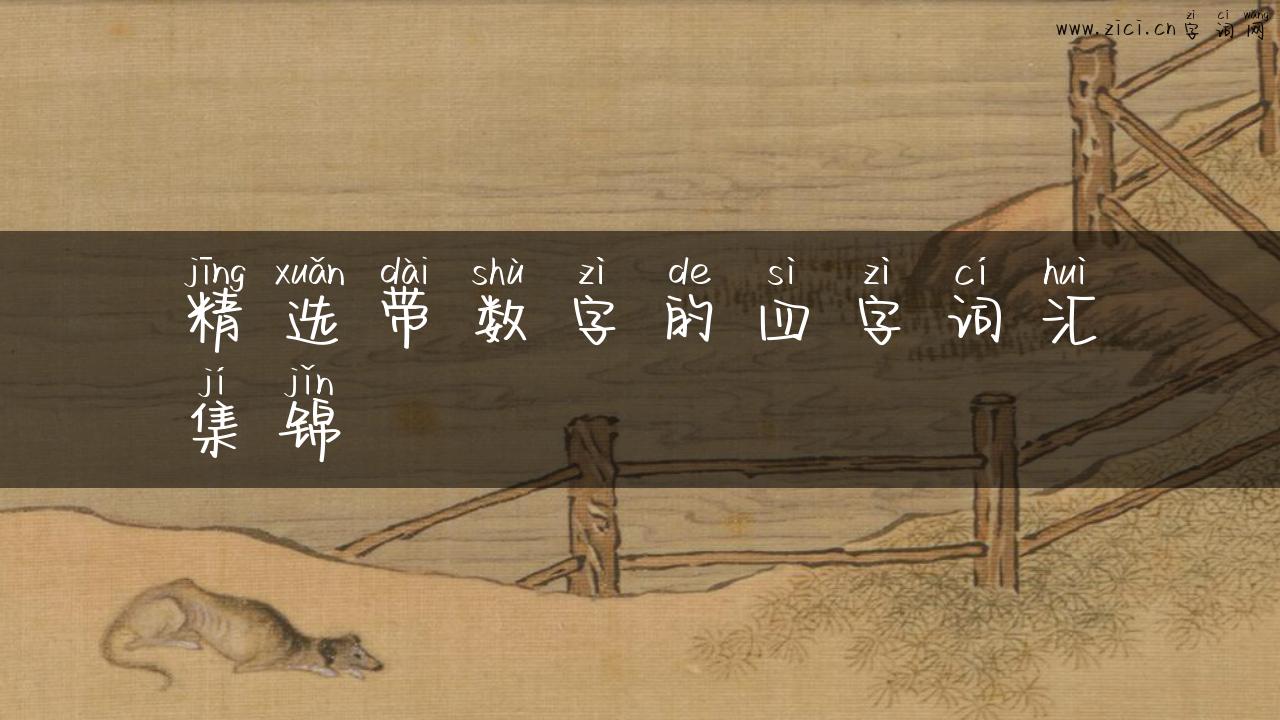 zì cí wǎng
www.zici.cn 字词网
jīng xuǎn dài shù zì de sì zì cí huì
精选带数字的四字词汇
jí jǐn
集锦